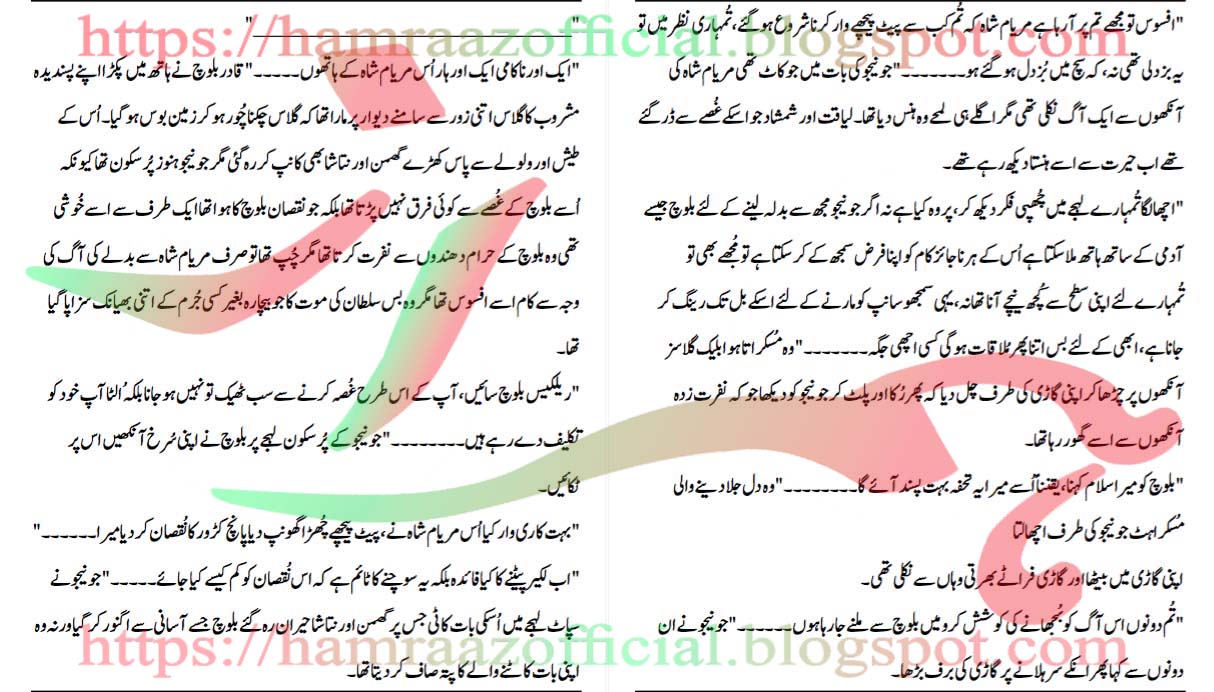 https://hamraazofficial.blogspot.com
"افسوس تو مجھے تم پر آ رہا ہے مریام شاہ کہ تُم کب سے پیٹ پیچھے وار کرنا شروع ہو گئے، تُمہاری نظر میں تو
یہ بزدلی تھی نہ، کہ سچ میں بُزدل ہو گئے ہو۔۔۔۔۔۔۔۔"جونیجو کی بات میں جو کاٹ تھی مریام شاہ کی
آنکھوں سے ایک آگ نکلی تھی مگر اگلے ہی لمحے وہ ہنس دیا تھا۔ لیاقت اور شمشاد جو اسکے غُصے سے ڈر گئے
تھے اب حیرت سے اسے ہنستا دیکھ رہے تھے۔
"اچھا لگا تُمہارے لہجے میں چُھپی فکر دیکھ کر، پر وہ کیا ہے نہ اگر جونیجو مجھ سے بدلہ لینے کے لئے بلوچ جیسے
آدمی کے ساتھ ہاتھ ملا سکتا ہے اُس کے ہر ناجائز کام کو اپنا فرض سمجھ کے کر سکتا ہے تو مُجھے بھی تو
تُمہارے لئے اپنی سطح سے کُچھ نیچے آنا تھا نہ، یہی سمجھو سانپ کو مارنے کے لئے اسکے بل تک رینگ کر
جانا ہے، ابھی کے لئے بس اتنا پھر مُلاقات ہو گی کسی اچھی جگہ۔۔۔۔۔۔۔"وہ مُسکراتا ہوا بلیک گلاسز
آنکھوں پر چڑھا کر اپنی گاڑی کی طرف چل دیا کہ پھر رُکا اور پلٹ کر جونیجو کو دیکھا جو کہ نفرت زدہ
آنکھوں سے اسے گھور رہا تھا۔
"بلوچ کو میرا سلام کہنا، یقیناً اُسے میرا یہ تحفہ بہت پسند آئے گا۔۔۔۔۔۔۔۔"وہ دل جلا دینے والی
مُسکراہٹ جونیجو کی طرف اچھالتا
اپنی گاڑی میں بیٹھا اور گاڑی فراٹے بھرتی وہاں سے نکلی تھی۔
"تُم دونوں اس آگ کو بُجھانے کی کوشش کرو میں بلوچ سے ملنے جا رہا ہوں۔۔۔۔۔۔۔"جونیجو نے ان
دونوں سے کہا پھر انکے سر ہلانے پر گاڑی کی برف بڑھا۔
"____________________"
"ایک اور ناکامی ایک اور ہار اُس مریام شاہ کے ہاتھوں۔۔۔۔۔"قادر بلوچ نے ہاتھ میں پکڑا اپنے پسندیدہ
مشروب کا گلاس اتنی زور سے سامنے دیوار پر مارا تھا کہ گلاس چکنا چُور ہو کر زمین بوس ہو گیا۔ اُس کے
طیش اور ولولے سے پاس کھڑے گھمن اور نتاشا بھی کانپ کر رہ گئی مگر جونیجو ہنوز پُر سکون تھا کیونکہ
اُسے بلوچ کے غُصے سے کوئی فرق نہیں پڑتا تھا بلکہ جو نقصان بلوچ کا ہوا تھا ایک طرف سے اسے خُوشی
تھی وہ بلوچ کے حرام دھندوں سے نفرت کرتا تھا مگر چُپ تھا تو صرف مریام شاہ سے بدلے کی آگ کی
وجہ سے کام اسے افسوس تھا مگر وہ بس سلطان کی موت کا جو بیچارہ بغیر کسی جُرم کے اتنی بھیانک سزا پا گیا
تھا۔
"ریلکیس بلوچ سائیں، آپ کے اس طرح غُصہ کرنے سے سب ٹھیک تو نہیں ہو جانا بلکہ اُلٹا آپ خود کو
تکلیف دے رہے ہیں۔۔۔۔۔۔۔۔"جونیجو کے پُر سکون لہجے پر بلوچ نے اپنی سُرخ آنکھیں اس پر
ٹکائیں۔
"بہت کاری وار کیا اُس مریام شاہ نے، پیٹ پیچھے چُھڑا گھونپ دیا پانچ کڑور کا نُقصان کر دیا میرا۔۔۔۔۔۔"
"اب لکیر پیٹنے کا کیا فائدہ بلکہ یہ سوچنے کا ٹائم ہے کہ اس نُقصان کو کم کیسے کیا جائے۔۔۔۔۔"جونیجو نے
سپاٹ لہجے میں اُسکی بات کاٹی جس پر گھمن اور نتاشا حیران رہ گئے بلوچ جسے آسانی سے اگنور کر گیا ورنہ وہ
اپنی بات کاٹنے والے کا پتہ صاف کر دیتا تھا۔
https://hamraazofficial.blogspot.com